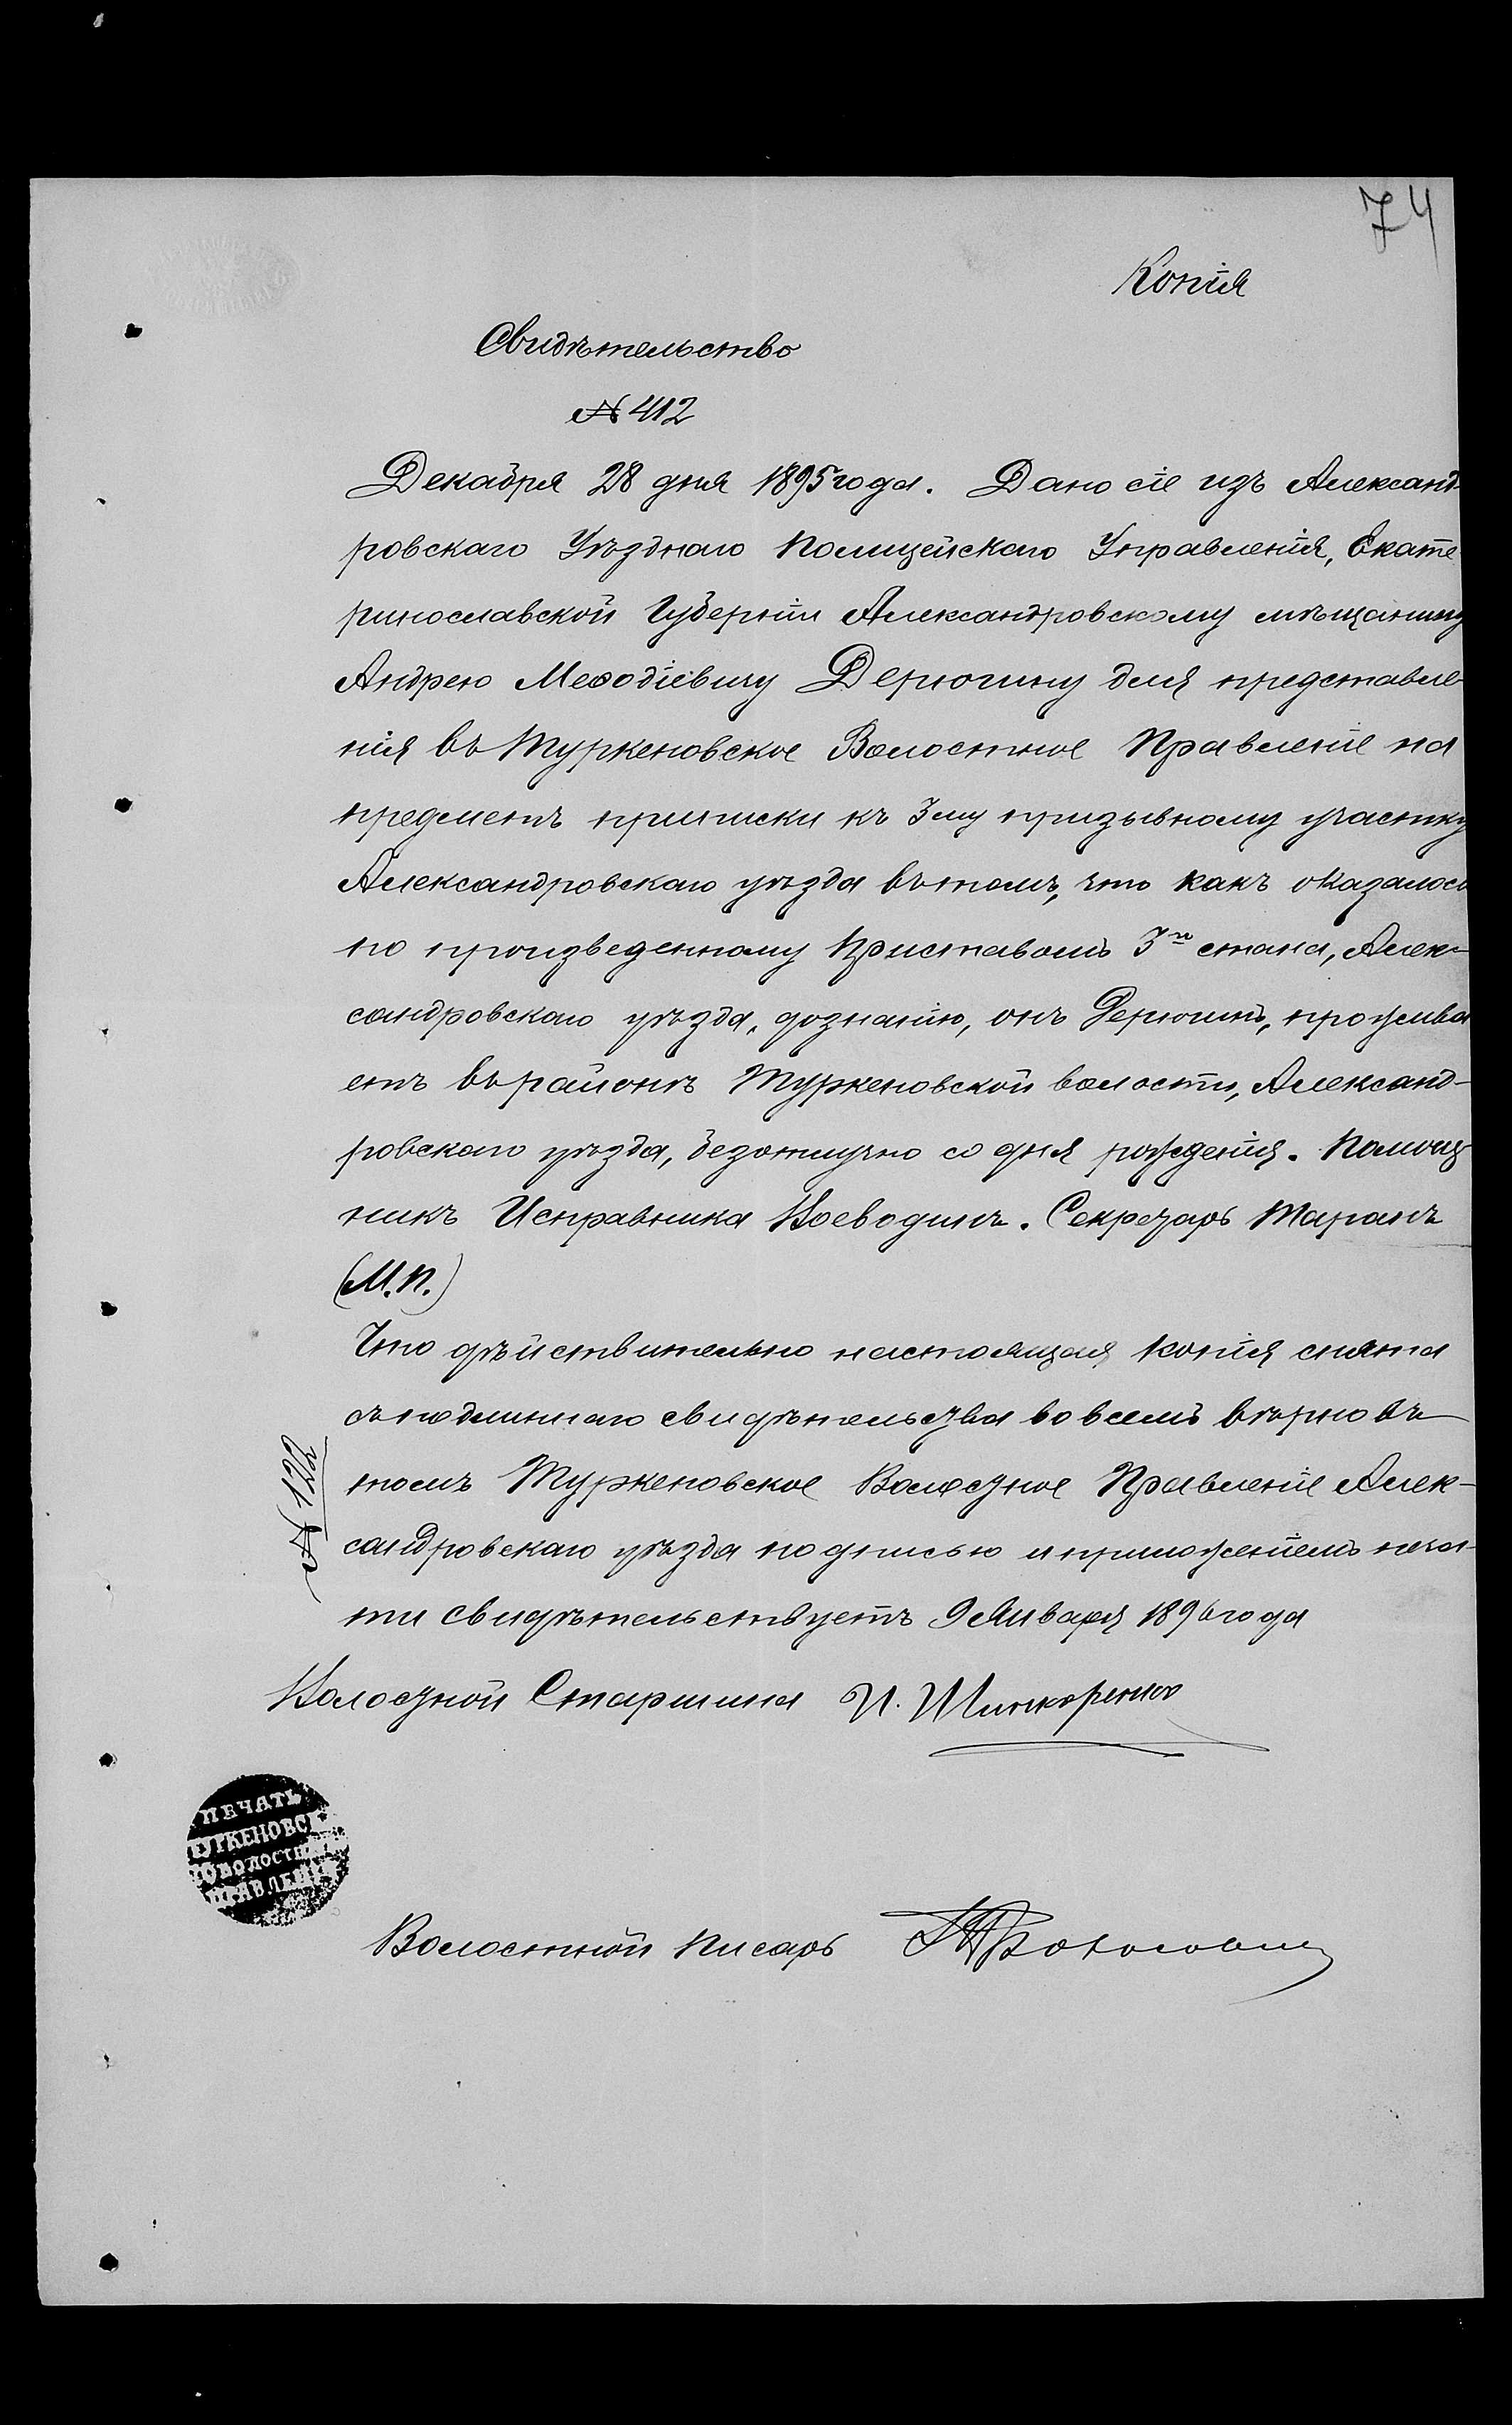 74
Копія
Свидѣтельство
№ 412
Декабря 28 дня 1895 года. Дано сіе изъ Александ-
ровскаго Уѣзднаго Полицейскаго Управленія, Екате
ринославской Губерніи Александровскому мѣщанину
Андрею Меѳодіевичу Дерюгину для представле-
нія въ Туркеновское Волостное Правленіе на
предметъ приписки къ 3му призывному участку
Александровскаго уѣзда въ томъ, что какъ оказалось
по произведенному Приставомъ 3го стана, Алек-
сандровскаго уѣзда, дознанію, онъ Дерюгинъ, прожива
етъ въ районѣ Туркеновской волости, Александ-
ровскаго уѣзда, безотлучно со дня рожденія. Помощ
никъ Исправника Воеводинъ. Секретарь Таранъ
(М.П.)
Что дѣйствительно настоящая копія снята
съ подлиннаго свидѣтельства во всемъ вѣрно въ
томъ Туркеновское Волостное Правленіе Алек-
сандровскаго уѣзда подписью и приложеніемъ печа-
ти свидѣтельствуетъ 9 Января 1896 года
№ 122
Волостной Старшина И.
ПЕЧАТЬ
ТУРКЕНОВСК
ГО ВОЛОСТН
ПРАВЛЕНІЯ
Волостной Писарь